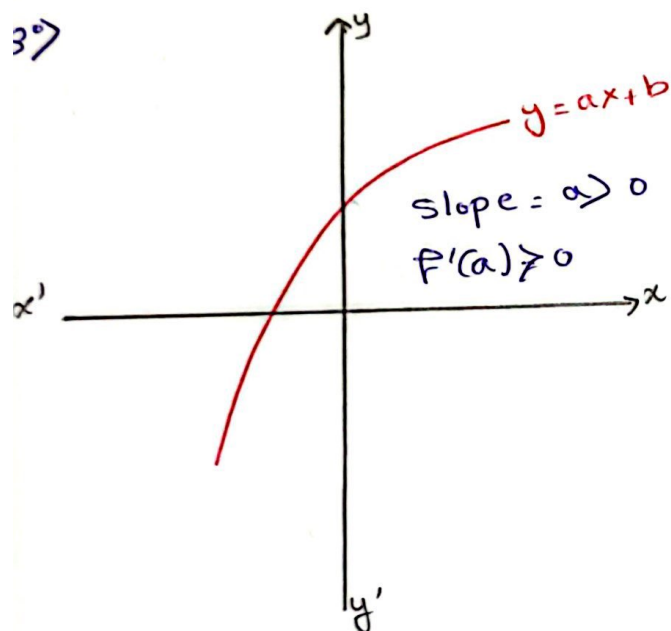 3°>
y
y = ax + b
slope = a > 0
f'(a) > 0
x'
x
y'